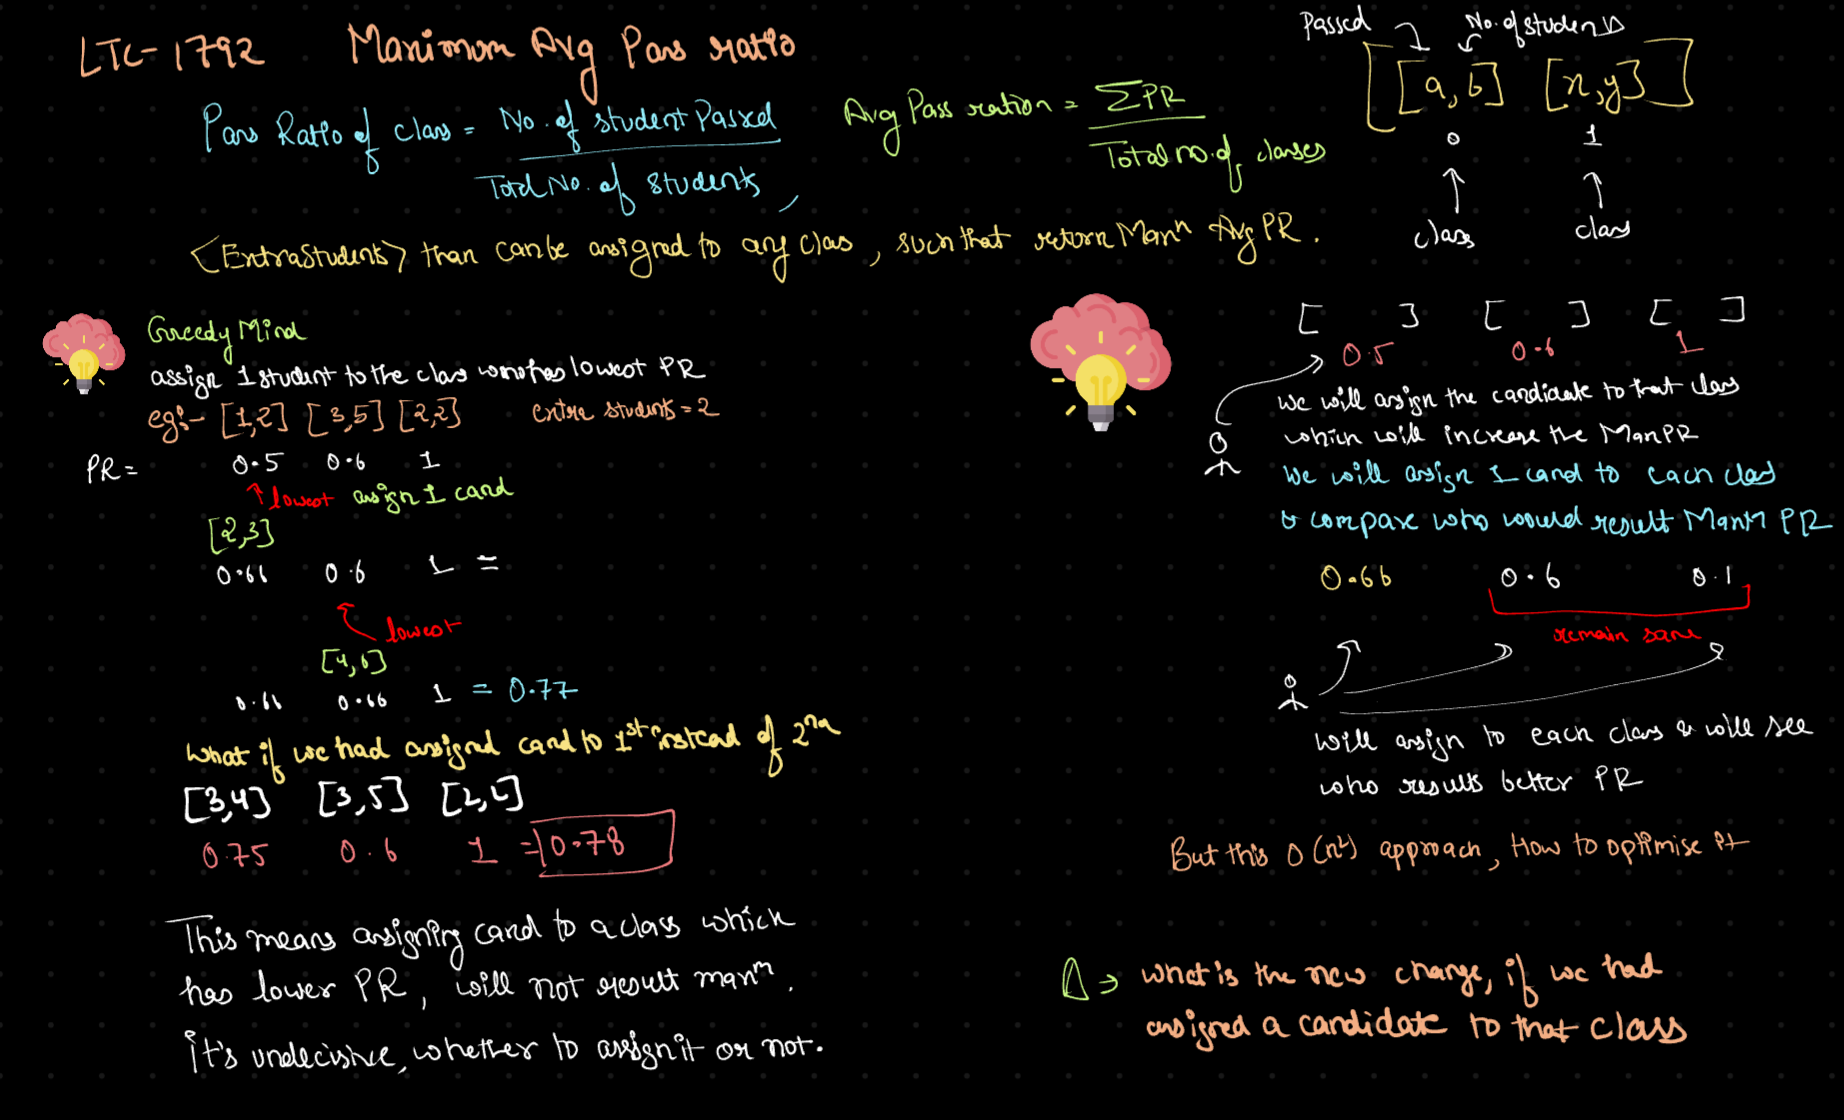 LTC-1792 Maximum Avg Pass ratio
Passed No. of students
[[a,b] [x,y]]
0 1
class class
Pass Ratio of class = No. of student Passed / Total No. of students,
Avg Pass ration = ΣPR / Total no. of classes
<ExtraStudents> than can be assigned to any class, such that return Maxm Avg PR.
Greedy Mind
assign 1 student to the class who has lowest PR
eg:- [1,2] [3,5] [2,2] extra students = 2
PR = 0.5 0.6 1
lowest assign 1 cand
[2,3]
0.66 0.6 1 =
lowest
[4,6]
0.66 0.66 1 = 0.77
What if we had assigned cand to 1st instead of 2nd
[3,4] [3,5] [2,2]
0.75 0.6 1 = 0.78
This means assigning cand to a class which
has lower PR, will not result maxm.
it's undecisive, whether to assign it or not.
[ ] [ ] [ ]
0.5 0.6 1
we will assign the candidate to that class
which will increase the Max PR
We will assign 1 cand to each class
& compare who would result Maxm PR
0.66 0.6 0.1
remain same
will assign to each class & will see
who results better PR
But this O(n²) approach, How to optimise it
Δ => what is the new change, if we had
assigned a candidate to that class